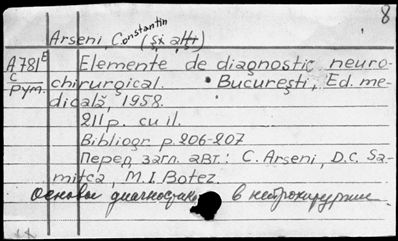 8
Arseni, Constantin (și alți)
A781 E Elemente de diagnostic neuro-
C chirurgical. București, Ed. me-
Рум. dicală, 1958.
211 p. cu il.
Bibliogr. p. 206-207
Перед загл. авт.: C. Arseni, D.C. Sa-
mitca, M.I. Botez.
Основы диагностики в нейрохирургии